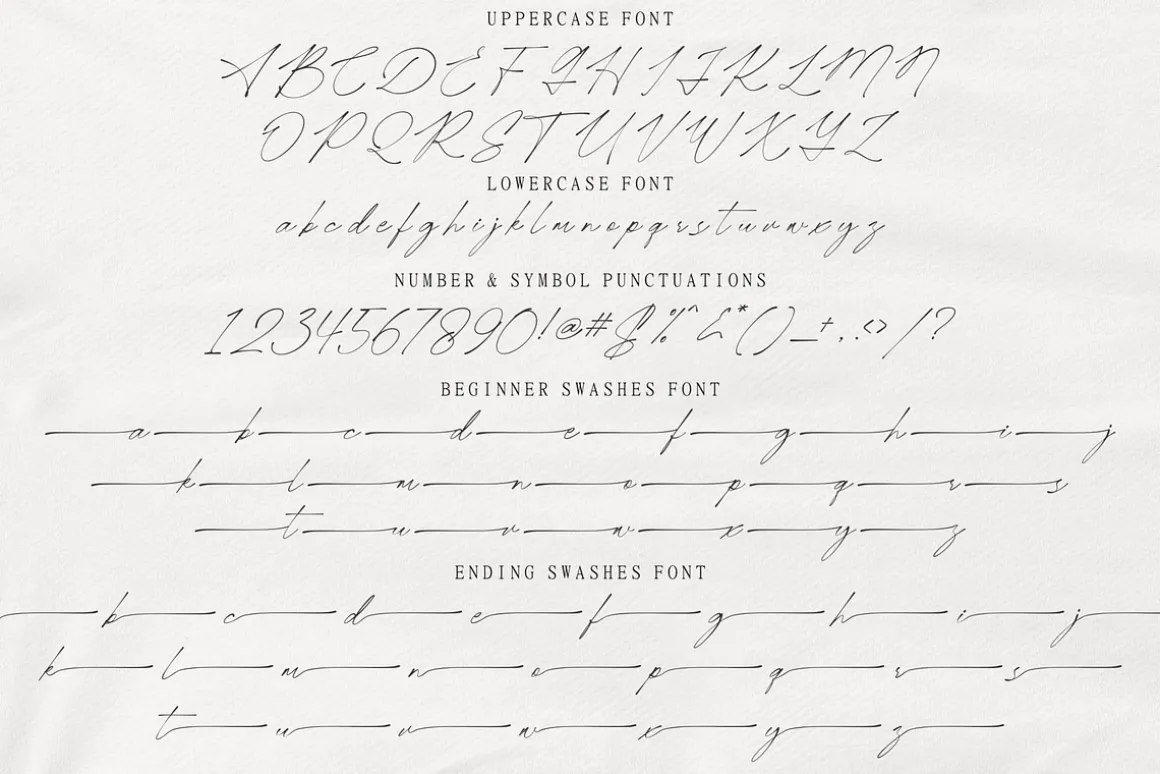 UPPERCASE FONT
ABCDEFGHIJKLMN
OPQRSTUVWXYZ
LOWERCASE FONT
abcdefghijklmnopqrstuvwxyz
NUMBER & SYMBOL PUNCTUATIONS
1234567890!@#$%^&*()_+,.<>/?
BEGINNER SWASHES FONT
a b c d e f g h i j
k l m n o p q r s
t u v w x y z
ENDING SWASHES FONT
b c d e f g h i j
k l m n o p q r s
t u v w x y z